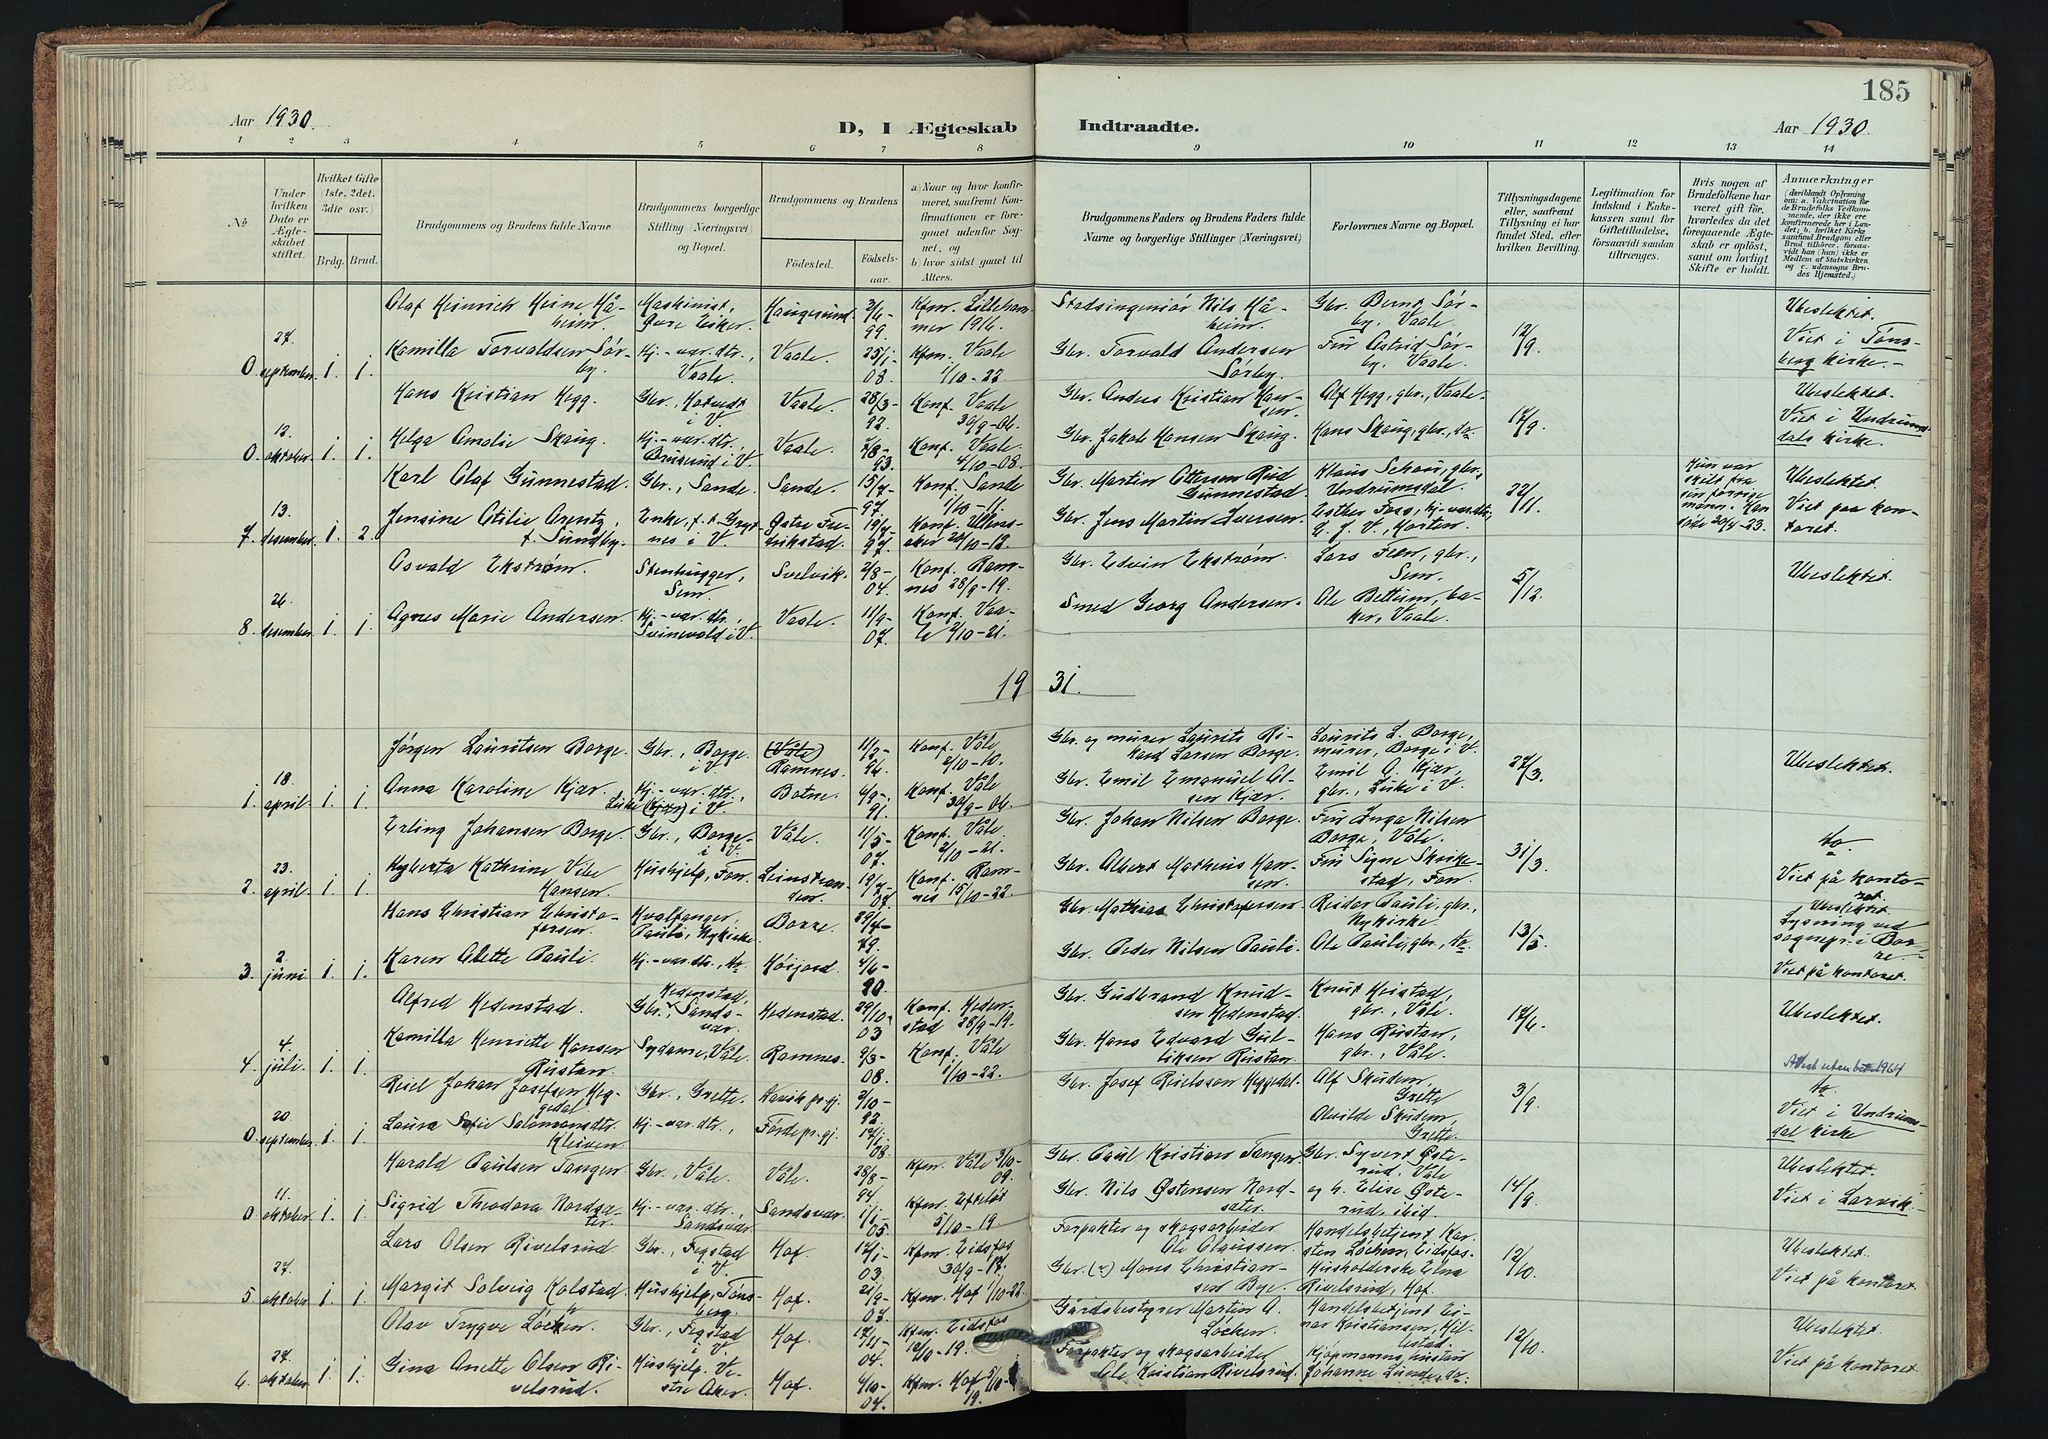 185
Aar 1930.
D, I Ægteskab Indtraadte.
Aar 1930.
1 2 3 4 5 6 7 8 9 10 11 12 13 14
No
Under hvilken Dato er Ægteskabet stiftet.
Hvilket Gifte (1ste. 2det. 3die osv.)
Brdg. Brud.
Brudgommens og Brudens fulde Navne
Brudgommens borgerlige Stilling (Næringsvei) og Bopæl.
Brudgommens og Brudens
Fødested. Fødselsaar.
a) Naar og hvor konfirmeret, saafremt Konfirmationen er foregaaet udenfor Sognet, og
b) hvor sidst gaaet til Alters.
Brudgommens Faders og Brudens Faders fulde Navne og borgerlige Stillinger (Næringsvei)
Forlovernes Navne og Bopæl.
Tillysningsdagene eller, saafremt Tillysning ei har fundet Sted, efter hvilken Bevilling.
Legitimation for Indskud i Enkekassen samt for Giftetilladelse, forsaavidt saadan tiltrænges.
Hvis nogen af Brudefolkene har været gift før, hvorledes da det foregaaende Ægteskab er opløst, samt om lovligt Skifte er holdt.
Anmærkninger (deriblandt Oplysning om: a. Vakcination for de Brudefolks Vedkommende, der ikke ere konfirmerede her i Landet; b. hvilket Kirkesamfund Brudgom eller Brud tilhører, forsaavidt han (hun) ikke er Medlem af Statskirken og c. udensogns Brudes Hjemsted.)
Olaf Heinrich Heine Håheim. Maskinist, Øvre Eiker. Haugesund. 2/6-99 Kfm. Lillehammer 1916. Stadsingeniør Nils Håheim. Gbr. Bernt Sørby, Vaale. Ubeslektet.
0 27. september. 1. 1. Kamilla Torvaldsen Sørby. Hj.-vær. dtr., Vaale. Vaale. 25/1-08 Kfm. Vaale 1/10-22. Gbr. Torvald Andersen Sørby. Fru Astrid Sørby, Vaale. 12/9. Viet i Tønsberg kirke.
Hans Kristian Hegg. Gbr., i V. Vaale. 28/3-92. Konf. Vaale 30/9-06. Gbr. Anders Kristian Hansen. Alf Hegg, gbr., Vaale. Ubeslektet.
0 12. oktober. 1. 1. Helga Amalie Skaug. Hj.-vær. dtr., Bruserud i V. Vaale. 93. Konf. Vaale 4/10-08. Gbr. Jakob Hansen Skaug. Hans Skaug, gbr., do 17/9. Viet i Undrumsdals kirke.
Karl Olaf Gunnestad. Gbr., Sande. Sande. 15/7-97 Konf. Sande 1/10-11. Gbr. Martin Ottersen Rud Gunnestad. Klaus Schou, gbr., Undrumsdal. Hun var skilt fra sin forrige mann. Ubeslektet.
7. 13. desember. 1. 2. Jensine Otilie f. Sundby. Enke, i V. Østre Fredrikstad. 19/7-97. Konf. Ullensaker 20/10-12. Gbr. Jens Martin Iversen. Esther Horten. 22/11. Viet paa kontoret.
Osvald Ekstrøm. Stenhugger, Sem. Svelvik. 2/8-04. Konf. Ramnes 28/9-19. Gbr. Edvin Ekstrøm. Lars Fem, gbr., Sem. Ubeslektet.
8. 26. desember. 1. 1. Agnes Marie Andersen. Hj.-vær. dtr., Svinevold i V. Vaale. 11/9-07 Konf. Vaale 2/10-21. Smed Georg Andersen. Ole Bettum, baker, Vaale. 5/12.
19 31.
Jørgen Lauritsen Borge. Gbr., Borge i V. (Våle) Ramnes. 96. Konf. Våle 2/10-10. Gbr. og murer Laurits Rikard Larsen Borge. Laurits L. Borge, murer, Borge i V. Ubeslektet.
1. 18. april. 1. 1. Anna Karoline Kjær. Hj.-vær. dtr., (Kjær) i V. Botne. 91. Konf. Våle 30/9-06. Gbr. Emil Emanuel Olsen Kjær. Emil O. Kjær, gbr., i V. 27/3.
Erling Johansen Borge. Gbr., Borge i V. Våle. 11/5-07. Konf. Våle 2/10-21. Gbr. Johan Nilsen Borge. Fru Inga Nilsen Borge, Våle. do.
2. 23. april. 1. 1. Kathrine Vibe Hansen. Hushjelp, Fon. Leinstranden. Konf. Ramnes 15/10-22. Gbr. Albert Matheus Hansen. Fru Signe Skvikestad, Fon. 31/3. Viet på kontoret.
Hans Christian Christofersen. Hvalfanger, Pauli, Nykirke. Borre. 29/4-79. Gbr. Mathias Christofersen. Reidar Pauli, gbr., Nykirke Ubeslektet. Lysning ved sognepr. i Borre
3. 2. juni 1. 1. Karen Alette Pauli. Hj.-vær. dtr., do Høijord. 4/6-90 Gbr. Peder Nilsen Pauli. Ole Pauli, gbr., do 13/5. Viet på kontoret.
Alfred Hedenstad. Gbr., Hedenstad, Sandsvær. Hedenstad. 29/10-03 Konf. Hedenstad 28/9-19. Gbr. Gudbrand Knudsen Hedenstad. Knut Heistad, gbr., Våle. Ubeslektet.
4. 4. juli. 1. 1. Kamilla Henriette Hansen Rustan. Sydame, Våle. Ramnes. 9/3-08. Konf. Våle 1/10-22. Gbr. Hans Edvard Gulliksen Rustan. Hans Rustan, gbr., Våle. 17/6.
Attest uten bet 1964
Reiel Johan Josefsen Heggedal. Gbr., Grette. pr.gj. 2/10-92. Gbr. Josef Reielsson Heggedal. Alf Skudem Grette do.
0. 20 september 1. 1. Laura Sofie Salomonsdtr. Kleiven Hj.-vær. dtr., Førde pr.gj. 08. Alvilde Skudem Grette. 3/9. Viet i Undrumsdal kirke
Harald Paulsen Tangen. Gbr., Våle. Våle. 28/8-94. Kfm. Våle 3/10-09. Gbr. Paul Kristian Tangen. Gbr. Syvert Østerud, Våle Ubeslektet.
0 11. oktober. 1. 1. Sigrid Theodora Nordsæter. Hj.-vær. dtr., Sandsvær. Sandsvær. 1/1-05. Kfm. Efteløt 5/10-19. Gbr. Nils Østensen Nordsæter. og h. Elise Østerud, ibid. 14/9. Viet i Larvik.
Lars Olsen Rivelsrud Gbr., Fegstad i V. Hof. 03. Kfm. Eidsfos 30/9-17. Forpakter og skogsarbeider Ole Claussen. Handelsbetjent Karsten Løcken, Eidsfos. Ubeslektet.
5. 27. oktober. 1. 1. Margit Solveig Kolstad. Hushjelp, Tønsberg. Hof. 21/9-07. Kfm. Hof 1/10-22. Gbr. Hans Christiansen Bye. Husholderske Edna Rivelsrud, Hof. 12/10. Viet på kontoret.
Olav Trygve Løcken. Gbr., Fegstad i V. Hof. 17/11-04. Kfm. Eidsfos 12/10-19. Gårdsbestyrer Martin A. Løcken. Handelsbetjent Einar Kristiansen, Ubeslektet.
6. 27. oktober. 1. 1. Gina Anette Olsen Rivelsrud. Hushjelp, Vestre Aker. Hof. 4/10-04. Kfm. Hof 5/10-19. Forpakter og skogsarbeider Ole Kristian Rivelsrud. Johanne Lunde, do. 12/10. Viet på kontoret.